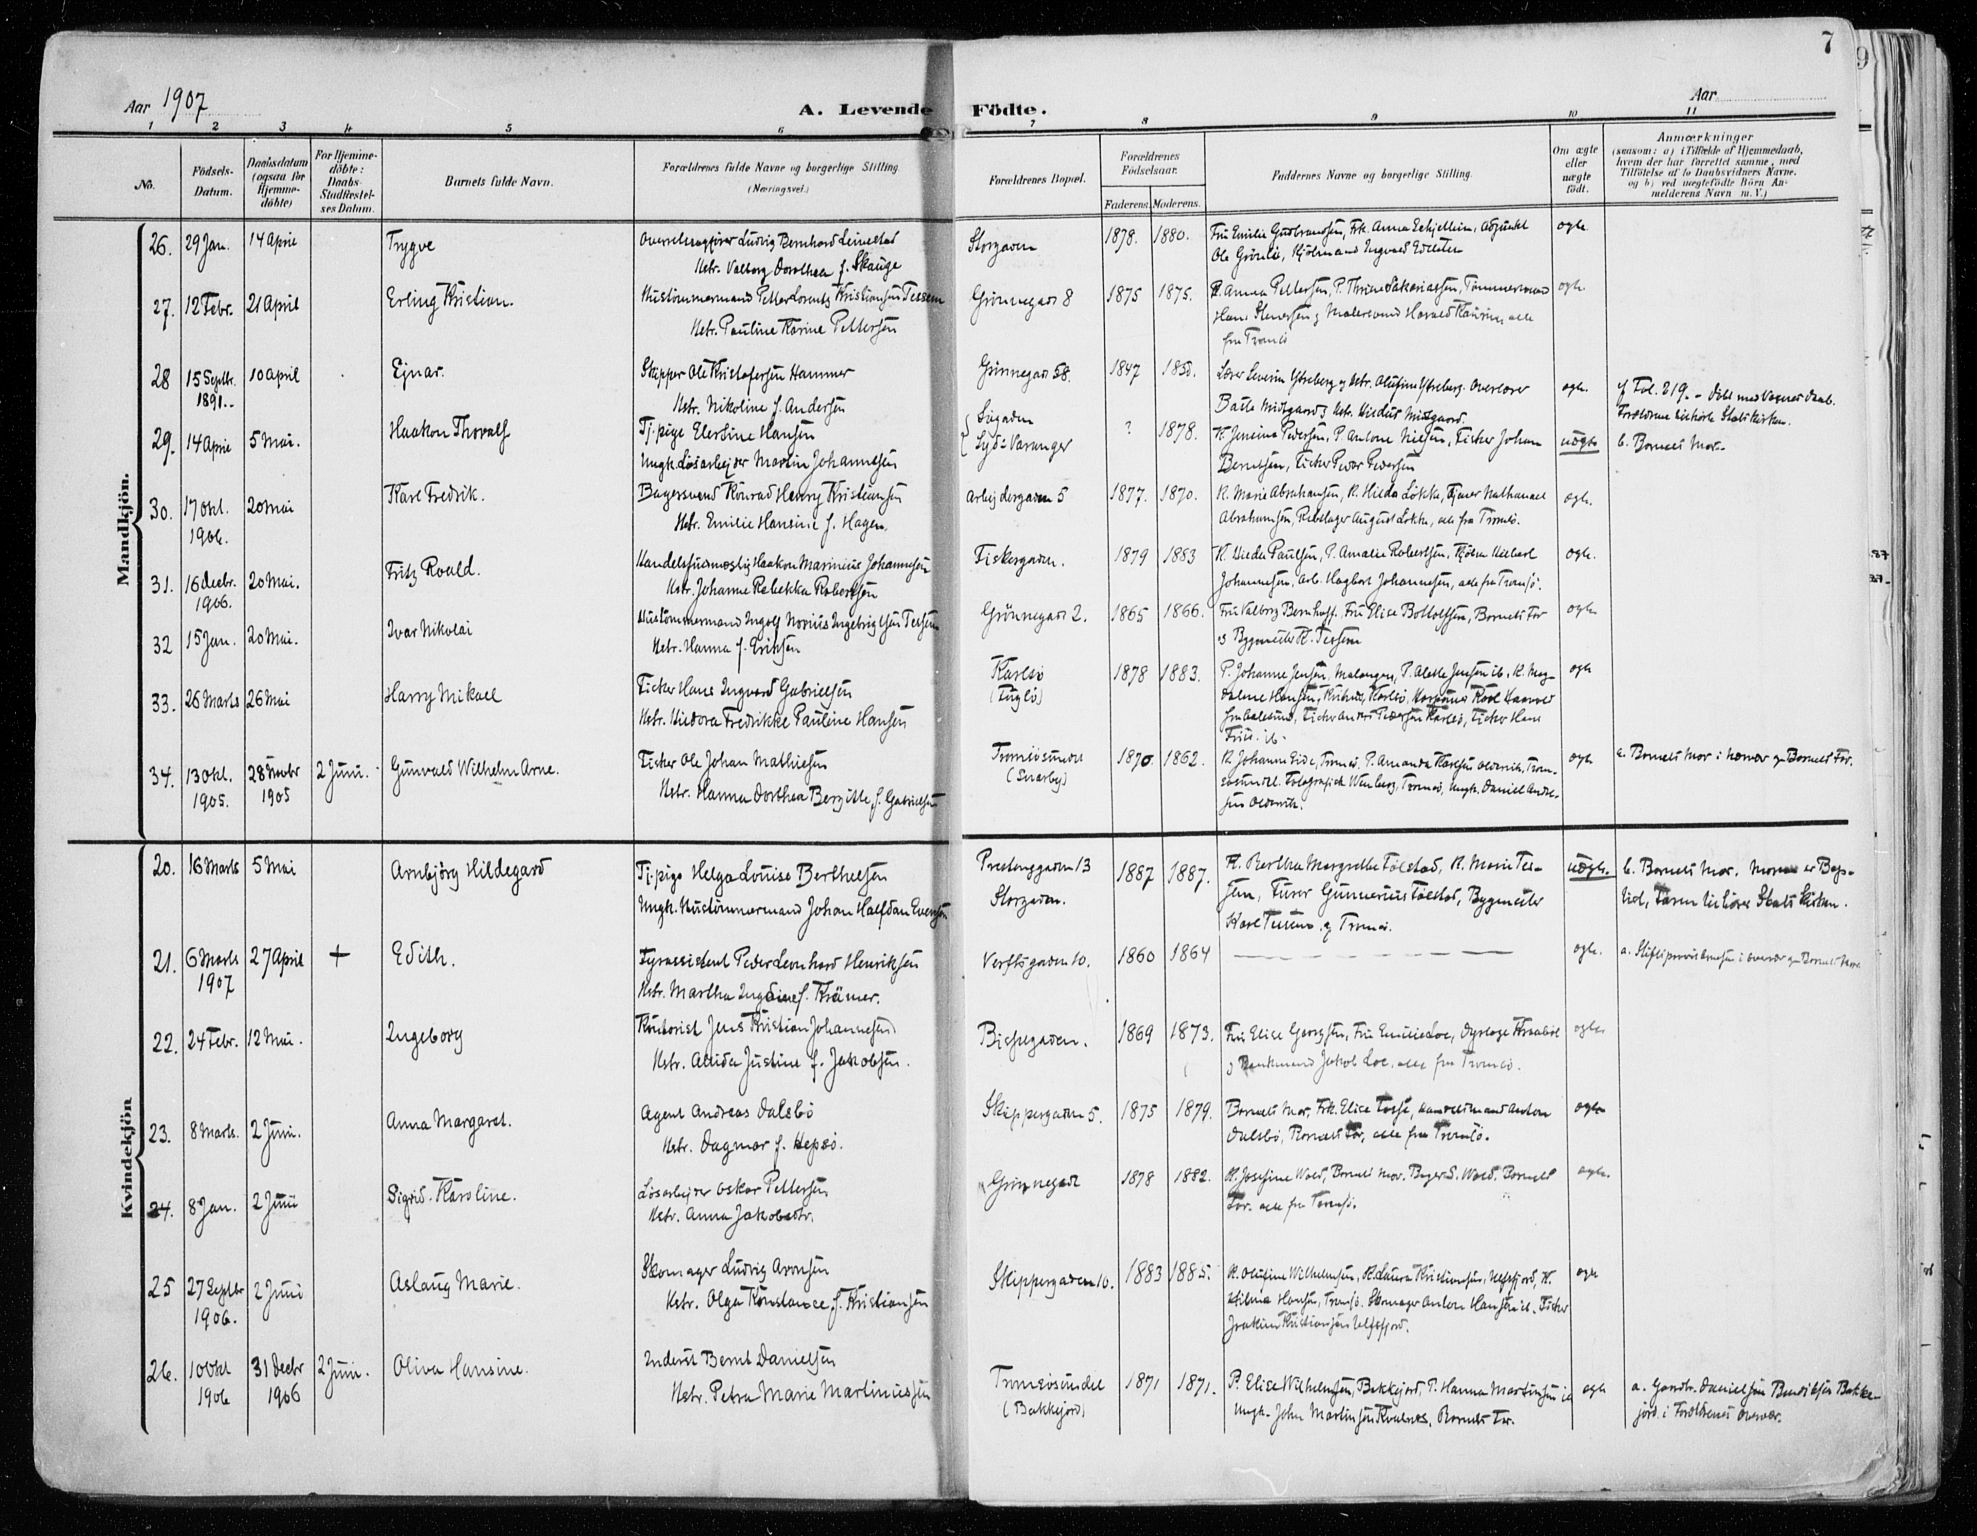 7
Aar 1907
A. Levende Födte.
Aar
1 2 3 4 5 6 7 8 9 10 11
No.
Födsels-
Datum.
Daabsdatum
(ogsaa for
Hjemme-
döbte)
For Hjemme-
döbte:
Daabs-
Stadfæstel-
ses Datum.
Barnets fulde Navn.
Forældrenes fulde Navne og borgerlige Stilling
(Næringsvei.)
Forældrenes Bopæl.
Forældrenes
Födselsaar.
Faderens. Moderens.
Faddernes Navne og borgerlige Stilling.
Om ægte
eller
uægte
födt.
Anmærkninger
(saasom: a) i Tilfælde af Hjemmedaab,
hvem der har forrettet samme, med
Tilföielse af to Daabsvidners Navne.
og b) ved uægtefödte Börn An-
melderens Navn m. V.)
Mandkjön.
26. 29 Jan. 14 April Trygve
Ludvig Bernhard Leinestad
Hstr. Valborg Dorothea f. Skauge
Storgaden 1878. 1880.
Fru Emilie Gudbrandsen, Frk. Anna Adjunkt
Ole Grönlie, Ingvald ægte.
27. 12 Febr. 21 April Erling Kristian.
Hustömmermand Petter Lorentz Kristiansen Tessem
Hstr. Pauline Karine Pettersen
Grönnegade 8 1875 1875.
K. Anna Pettersen, P. Tömmermand
Hans og Malersvend Harald alle
fra Tromsö ægte
28 15 Septbr. 10 April Ejnar.
1891.
Skipper Ole Kristofersen Hammer
Hstr. Nikoline f. Andersen
Grönnegade 58. 1847 1850.
Lærer Severin Ytreberg og Hstr. Olufine Ytreberg. Overlærer
Balle Midtgaard og Hstr. Hildur Midtgaard. ægte.
cf Fol. 219.
Forældrene Statskirken.
29. 14 April 5 Mai. Haakon Thoralf
Tj.pige Elertine Hansen
Ungk. Lösarbejder Martin Johannesen
Sögaden
Syd-Varanger ? 1878.
K. Pedersen, P. Antone Nielsen, Fisker Johan
Berntsen, Fisker Peder Pedersen uægte b. Barnets Mor.
30. 17 Okt. 20 Mai Karl Fredrik.
1906.
Bagersvend Konrad Henry Kristiansen
Hstr. Emilie Hansine f. Hagen.
Arbejdergaden 5 1877. 1870.
K. Marie Abrahamsen, K. Hilda Lökke, Nathanael
Abrahamsen, August Lökke, alle fra Tromsö. ægte.
31. 16 Decbr. 20 Mai. Fritz Roald.
1906.
Haakon Marinius Johannesen
Hstr. Johanne Rebekka Robertsen
Fiskergaden. 1879 1883
K. Hilda Paulsen, P. Amalie Robertsen,
Johannesen, Arb. Hagbart Johannesen, alle fra Tromsö. ægte.
32 15 Jan. 20 Mai. Ivar Nikolai
Hustömmermand Ingolf Ingebrigtsen Tessem
Hstr. Hanna f. Eriksen
Grönnegade 2. 1865 1866.
Fru Valborg Bernhoff, Fru Elise Bottolfsen, Barnets Far
og Bygmester K. Tessem ægte
33. 26 Marts 26 Mai Harry Mikael
Fisker Hans Ingvard Gabrielsen
Hstr. Fredrikke Pauline Hansen
Karlsö
(Fuglö) 1878 1883.
P. Johanne Jensen, Malangen, P. Jensen ib., K. Mag-
dalene Hansen, Karlsö,
Fisker Anders Pedersen Karlsö, Fisker Hans
ib. ægte
34. 13 Okt. 28 Novbr 2 Juni. Gunvald Wilhelm Arne.
1905. 1905
Fisker Ole Johan Mathisen
Hstr. Hanna Dorthea Bergitte f. Gabrielsen
Tromsösundet
(Snarby) 1870. 1862.
K. Johanna Eide, Tromsö, P. Amanda Karlsen Oldervik, Trom-
sösundet. Fotografisk Wenberg, Tromsö, Ungk. Daniel Andre-
sen Oldervik. ægte
a. Barnets Mor i nærvær av Barnets Far.
Kvindekjön
20. 16 Marts 5 Mai Arnbjörg Hildegard
Tj.pige Helga Louise Berthelsen
Ungk. Hustömmermand Johan Halfdan Evensen
Prestenggaden 13
Storgaden. 1887 1887.
K. Bertha Margrethe K. Marie Tes-
sem, Gunnerius Bygmester
Karl Tessem, Tromsö. uægte.
b. Barnets Mor. Moren er Bap-
tist, Faren tilhörer Stats Kirken.
21. 6 Marts 27 April + Edith.
1907
Fyrassistent Peder Leonhard Henriksen
Hstr. Martha f. Krämer.
Verftsgaden 10. 1860 1864 ægte.
a. Stiftsprovst i nærvær av Barnets Mor.
22. 24 Febr. 12 Mai. Ingeborg
Kontorist Jens Kristian Johannesen
Hstr. Justine f. Jakobsen.
Bispegaden. 1869 1873.
Fru Elise Georgsen, Fru Emilie Loe, Dyrlæge
og Jakob Loe, alle fra Tromsö. ægte
23. 8 Marts. 2 Juni. Anna Margaret.
Agent Andreas Dalsbö
Hstr. Dagmar f. Hepsö.
Skippergaden 5. 1875 1879.
Barnets Mor, Frk. Elise Handelsmand Anton
Dalsbö, Barnets Far, alle fra Tromsö. ægte
24. 8 Jan. 2 Juni Sigrid Karoline.
Lösarbejder Oskar Pettersen
Hstr. Anna Jakobsdtr.
Grönnegade 1878 1882.
K. Josefine Wold, Barnets Mor, Wold, Barnets
Far. alle fra Tromsö. ægte.
25 27 Septbr 2 Juni Aslaug Marie.
1906.
Skomager Ludvig Aronsen
Hstr. Olga Konstance f. Kristiansen
Skippergaden 10. 1883 1885.
K. Olufine Wilhelmsen, K. Laura Kristiansen, Ulfsfjord, K.
Hilma Hansen, Tromsö. Skomager Anton Hansen ib. Fisker
Joakim Kristiansen Ulfsfjord. ægte
26. 10 Okt 31 Decbr 2 Juni. Oliva Hansine.
1906 1906
Inderst Bernt Danielsen
Hstr. Petra Marie Martinussen
Tromsösundet
(Bakkejord) 1871 1871.
P. Elise Wilhelmsen, Bakkejord, P. Hanna Martinsen ib
Ungk. John Martinsen Kvalnes, Barnets Far. ægte
a. Gaardbr. Daniel Bendiksen Bakke-
jord i Forældrenes Nærvær.